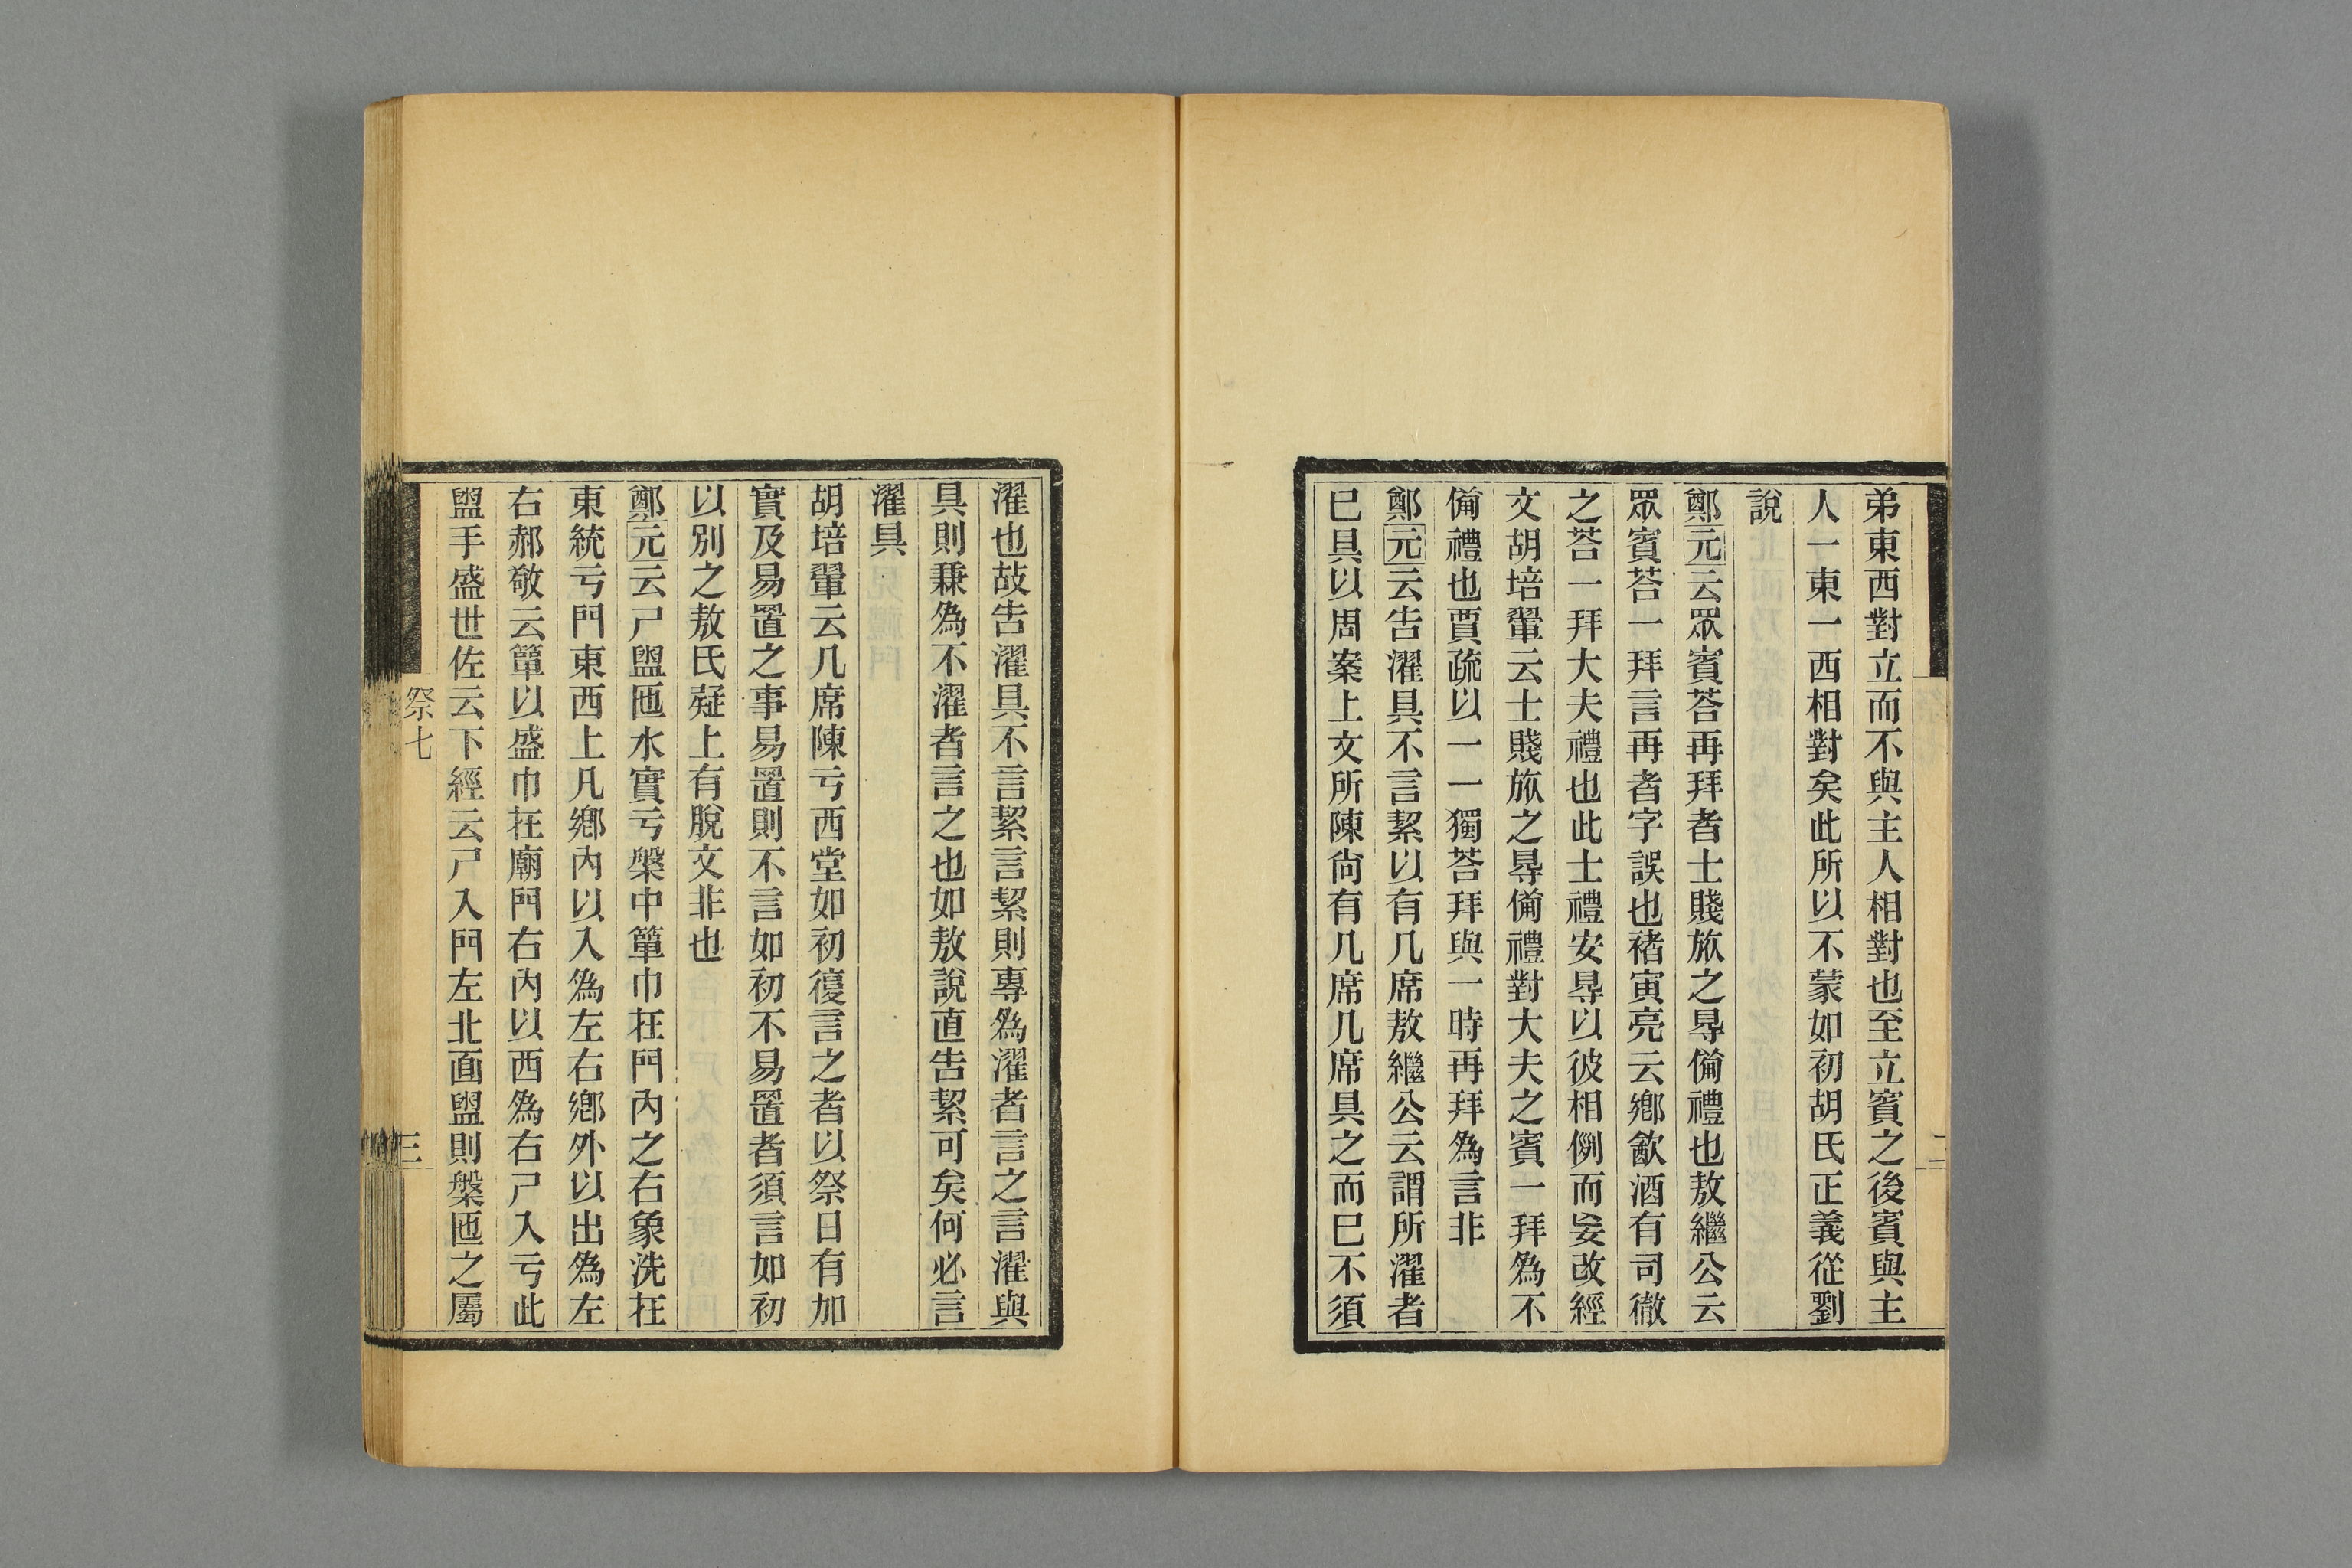 弟東西對立而不與主人相對也至立賓之後賓與主
人一東一西相對矣此所以不蒙如初胡氏正義從劉
說
鄭元云眾賓荅再拜者士賤旅之㝵僃禮也敖繼公云
眾賓荅一拜言再者字誤也褚寅亮云鄉歙酒有司徹
之荅一拜大夫禮也此士禮安㝵以彼相例而妄改經
文胡培翬云士賤旅之㝵僃禮對大夫之賓一拜爲不
僃禮也賈疏以一一獨荅拜與一時再拜爲言非
鄭元云告濯具不言絜以有几席敖繼公云謂所濯者
已具以周案上文所陳尙有几席几席具之而已不須
濯也故告濯具不言絜言絜則專爲濯者言之言濯與
具則兼爲不濯者言之也如敖說直告絜可矣何必言
濯具
胡培翬云几席陳亏西堂如初復言之者以祭日有加
實及易置之事易置則不言如初不易置者須言如初
以別之敖氏疑上有脫文非也
鄭元云尸盥匜水實亏槃中簞巾在門內之右象洗在
東統亏門東西上凡鄉內以入爲左右鄉外以出爲左
右郝敬云簞以盛巾在廟門右內以西爲右尸入亏此
盥手盛世佐云下經云尸入門左北面盥則槃匜之屬
祭七
三